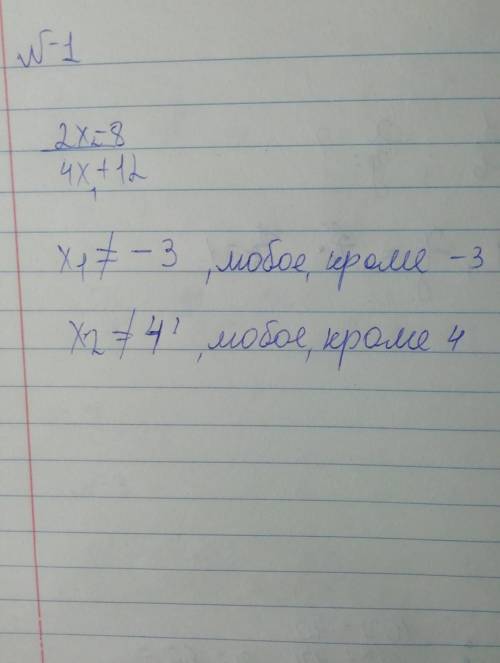 №1
2x₂-8
4x₁+12
x₁ ≠ -3, любое, кроме -3
x₂ ≠ 4, любое, кроме 4